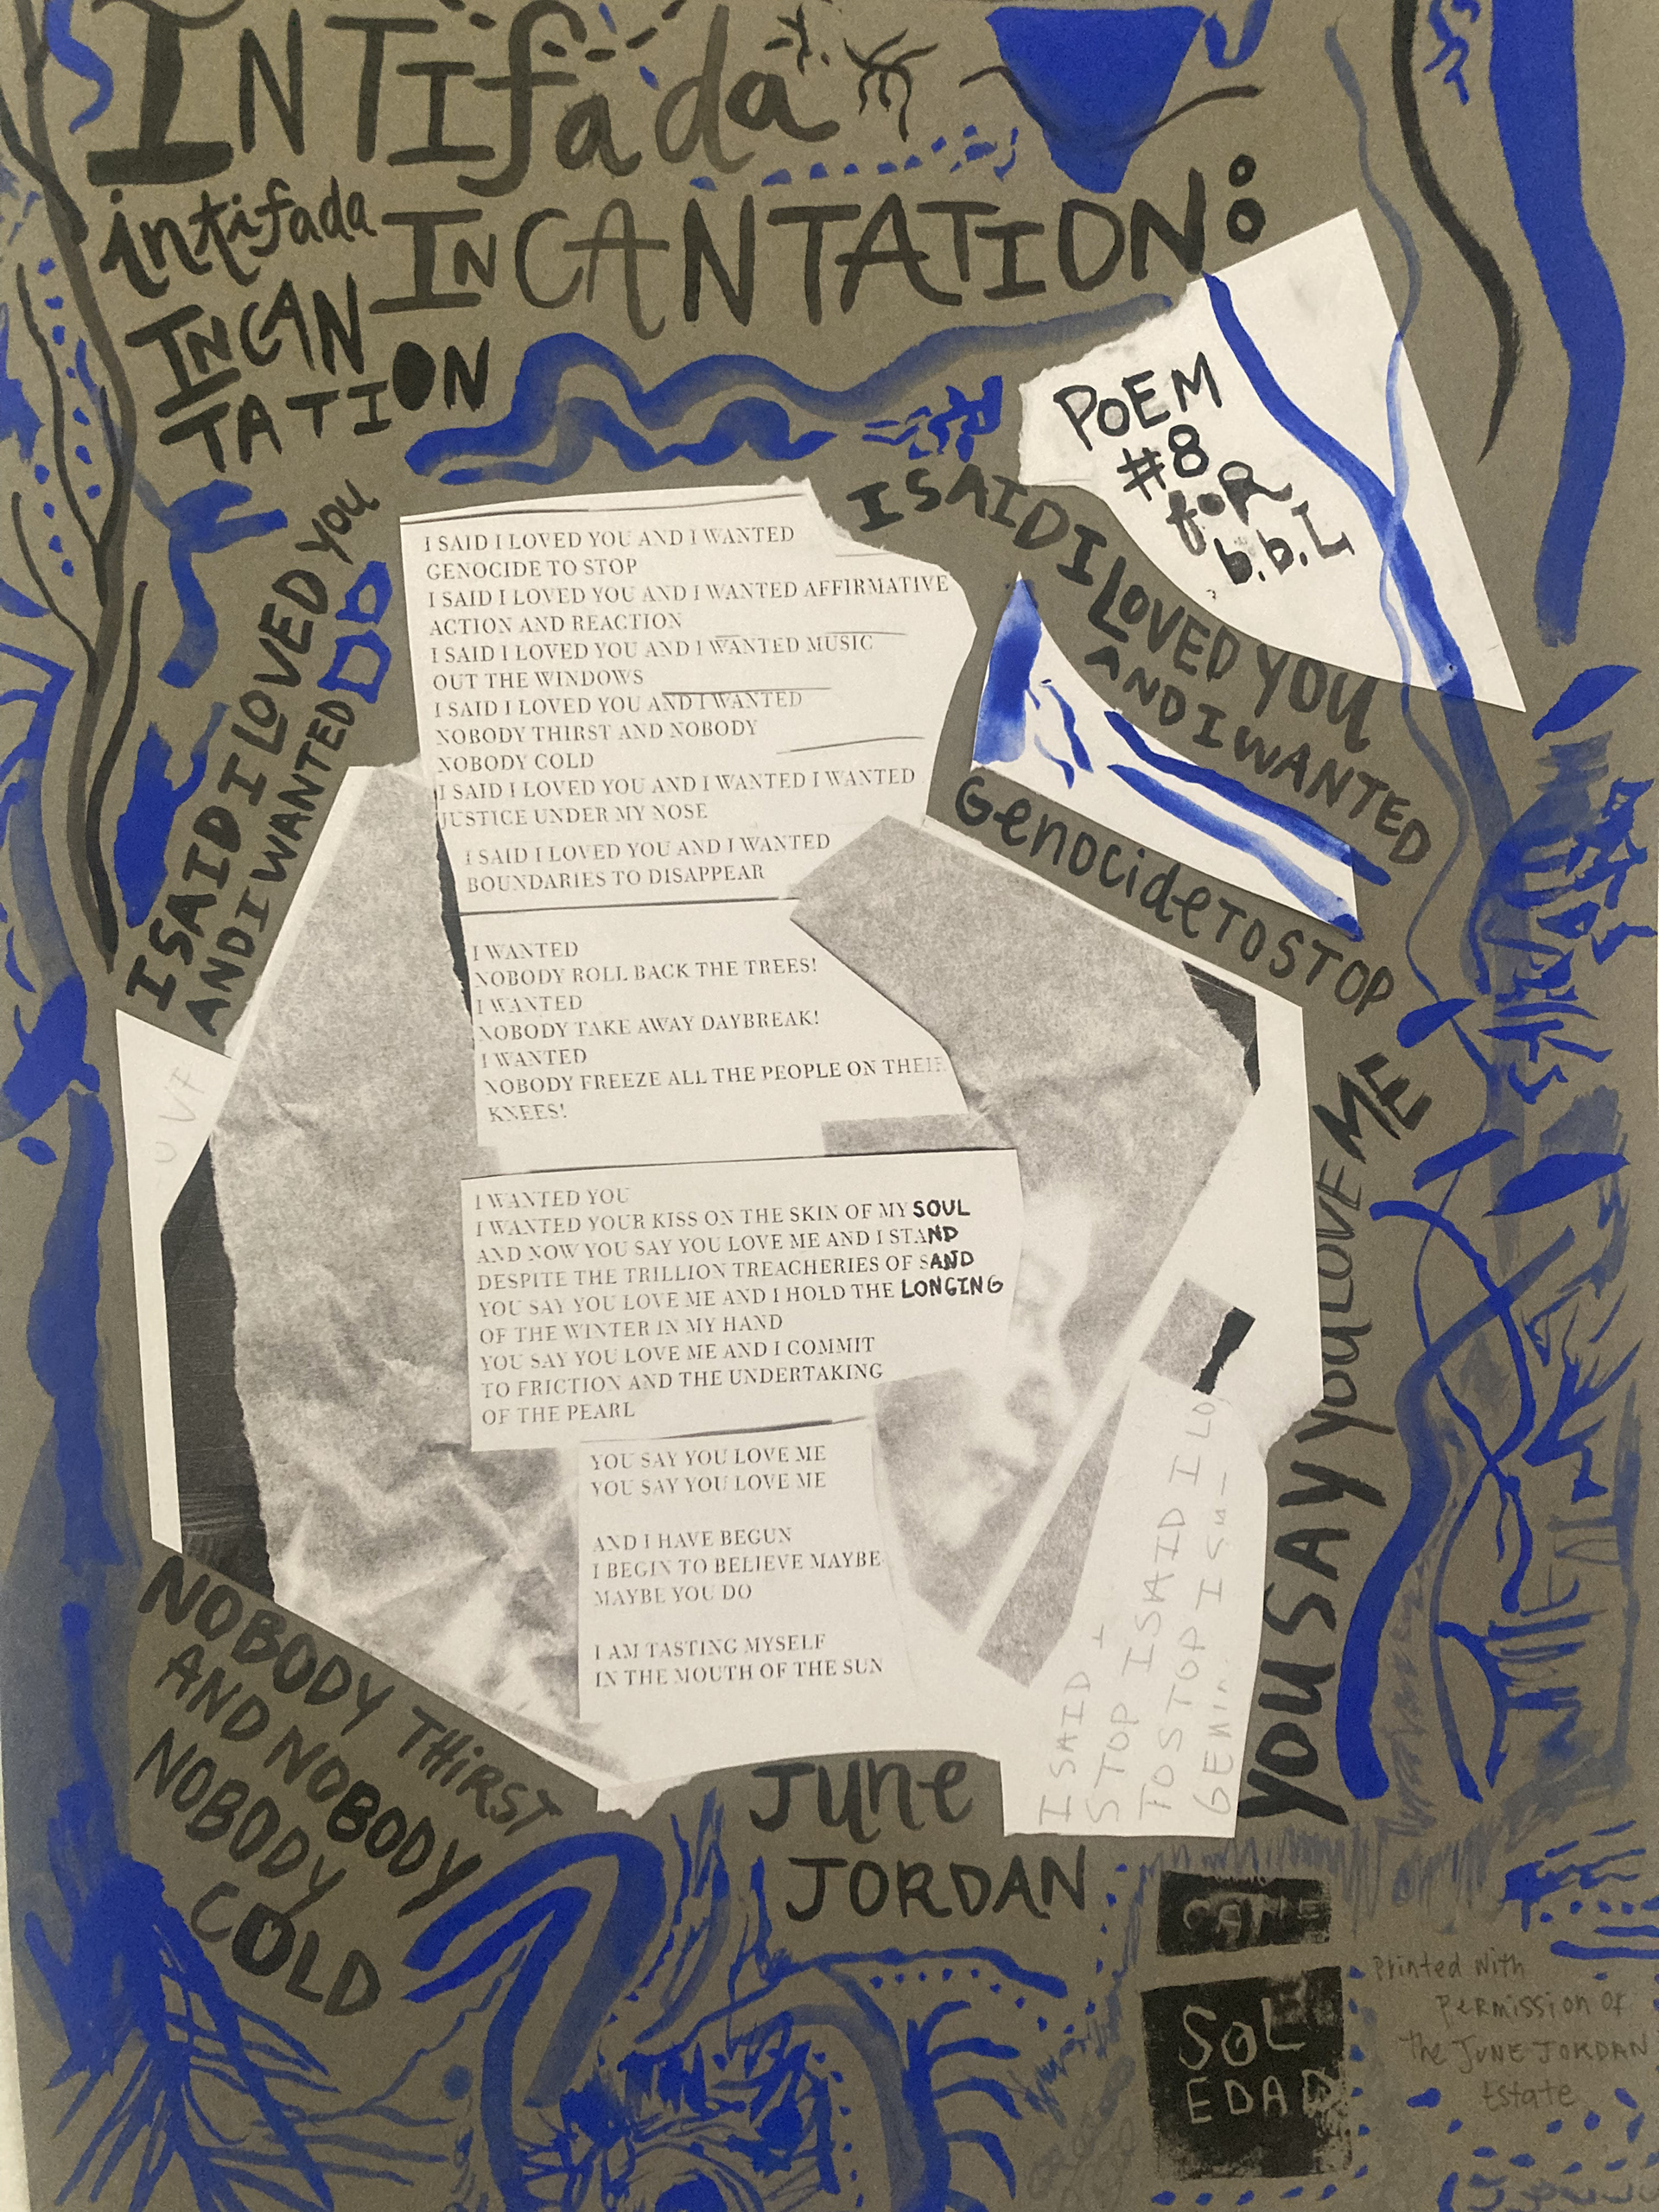 INTIfada
INCANTATION:
intifada
INCAN
TATION
POEM
#8
foR
b.b.L
I SAID I LOVED YOU
AND I WANTED
I SAID I LOVED YOU
AND I WANTED
GenocideTOSTOP
I SAID I LOVED YOU AND I WANTED
GENOCIDE TO STOP
I SAID I LOVED YOU AND I WANTED AFFIRMATIVE
ACTION AND REACTION
I SAID I LOVED YOU AND I WANTED MUSIC
OUT THE WINDOWS
I SAID I LOVED YOU AND I WANTED
NOBODY THIRST AND NOBODY
NOBODY COLD
I SAID I LOVED YOU AND I WANTED I WANTED
JUSTICE UNDER MY NOSE
I SAID I LOVED YOU AND I WANTED
BOUNDARIES TO DISAPPEAR
I WANTED
NOBODY ROLL BACK THE TREES!
I WANTED
NOBODY TAKE AWAY DAYBREAK!
I WANTED
NOBODY FREEZE ALL THE PEOPLE ON THEIR
KNEES!
I WANTED YOU
I WANTED YOUR KISS ON THE SKIN OF MY SOUL
AND NOW YOU SAY YOU LOVE ME AND I STAND
DESPITE THE TRILLION TREACHERIES OF SAND
YOU SAY YOU LOVE ME AND I HOLD THE LONGING
OF THE WINTER IN MY HAND
YOU SAY YOU LOVE ME AND I COMMIT
TO FRICTION AND THE UNDERTAKING
OF THE PEARL
YOU SAY YOU LOVE ME
YOU SAY YOU LOVE ME
AND I HAVE BEGUN
I BEGIN TO BELIEVE MAYBE
MAYBE YOU DO
I AM TASTING MYSELF
IN THE MOUTH OF THE SUN
YOU SAY YOU LOVE ME
I SAID
STOP I SAID I LO
TO STOP I SU
NOBODY THIRST
AND NOBODY
NOBODY
COLD
June
JORDAN
SOL
EDAD
Printed with
permission of
The JUNE JORDAN
Estate